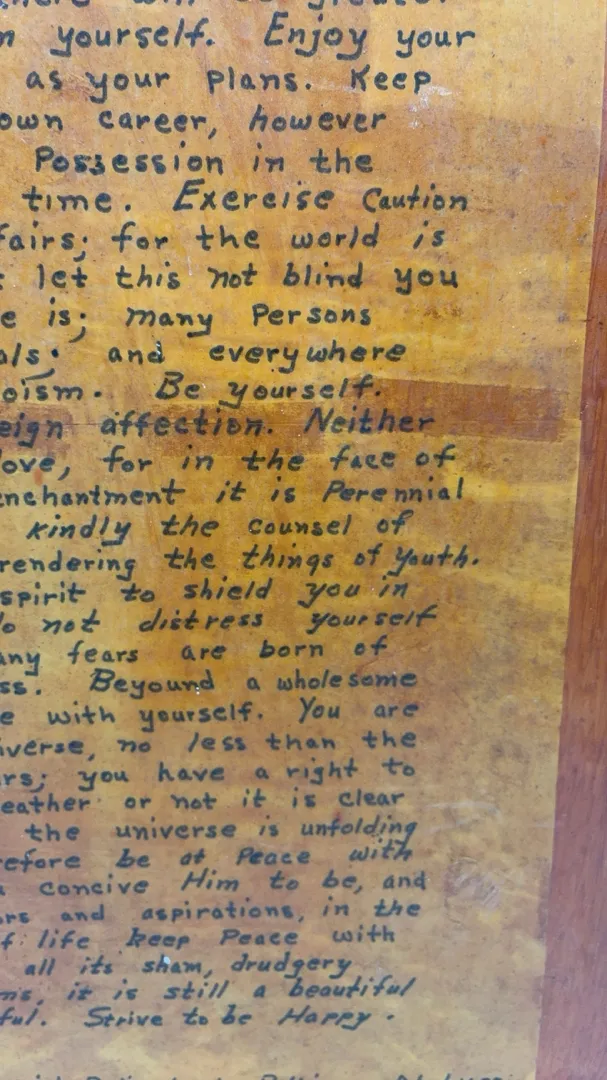 yourself. Enjoy your
as your Plans. Keep
own career, however
Possession in the
time. Exercise Caution
fairs; for the world is
let this not blind you
e is; many Persons
als; and everywhere
oism. Be yourself.
eign affection. Neither
love, for in the face of
enchantment it is Perennial
kindly the counsel of
rendering the things of Youth.
spirit to shield you in
do not distress yourself
any fears are born of
ss. Beyound a wholesome
e with yourself. You are
iverse, no less than the
rs; you have a right to
eather or not it is clear
the universe is unfolding
refore be at Peace with
concive Him to be, and
ors and aspirations, in the
f life keep Peace with
all its sham, drudgery
ms, it is still a beautiful
ful. Strive to be Happy.